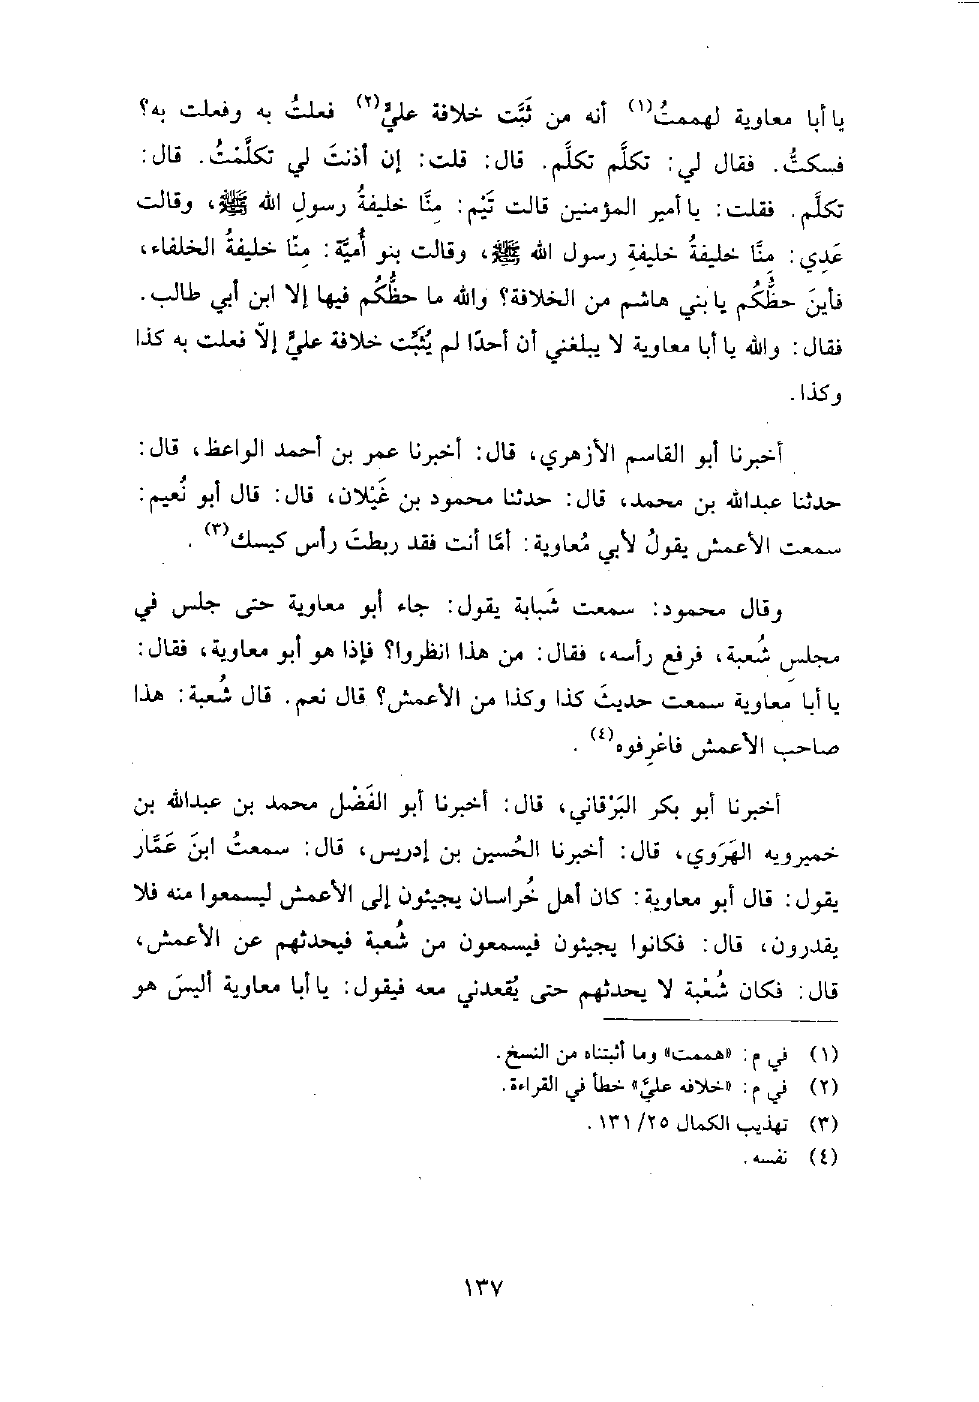 يا أبا معاوية لهممتُ(١) أنه من ثَبَّت خلافة عليٍّ(٢) فعلتُ به وفعلت به؟
فسكتُّ. فقال لي: تكلَّم تكلَّم. قال: قلت: إن أذنتَ لي تكلَّمْتُ. قال:
تكلَّم. فقلت: يا أمير المؤمنين قالت تَيْم: مِنَّا خليفةُ رسولِ الله ﷺ، وقالت
عَدِي: مِنَّا خليفةُ خليفةِ رسول الله ﷺ، وقالت بنو أُميَّة: مِنّا خليفةُ الخلفاء،
فأينَ حظُّكُم يا بني هاشم من الخلافة؟ والله ما حظُّكُم فيها إلا ابن أبي طالب.
فقال: والله يا أبا معاوية لا يبلغني أن أحدًا لم يُثَبِّت خلافة عليٍّ إلّا فعلت به كذا
وكذا.
أخبرنا أبو القاسم الأزهري، قال: أخبرنا عمر بن أحمد الواعظ، قال:
حدثنا عبدالله بن محمد، قال: حدثنا محمود بن غَيْلان، قال: قال أبو نُعيم:
سمعت الأعمش يقولُ لأبي مُعاوية: أمَّا أنت فقد ربطتَ رأس كيسك(٣).
وقال محمود: سمعت شَبابة يقول: جاء أبو معاوية حتى جلس في
مجلسِ شُعبة، فرفع رأسه، فقال: من هذا انظروا؟ فإذا هو أبو معاوية، فقال:
يا أبا معاوية سمعت حديثَ كذا وكذا من الأعمش؟ قال نعم. قال شُعبة: هذا
صاحب الأعمش فاعْرِفوه(٤).
أخبرنا أبو بكر البَرْقاني، قال: أخبرنا أبو الفَضْل محمد بن عبدالله بن
خميرويه الهَرَوي، قال: أخبرنا الحُسين بن إدريس، قال: سمعتُ ابنَ عَمَّار
يقول: قال أبو معاوية: كان أهل خُراسان يجيئون إلى الأعمش ليسمعوا منه فلا
يقدرون، قال: فكانوا يجيئون فيسمعون من شُعبة فيحدثهم عن الأعمش،
قال: فكان شُعْبة لا يحدثهم حتى يُقعدني معه فيقول: يا أبا معاوية أليسَ هو
(١) في م: «هممت» وما أثبتناه من النسخ.
(٢) في م: «خلافه عليَّ» خطأ في القراءة.
(٣) تهذيب الكمال ٢٥/ ١٣١.
(٤) نفسه.
١٣٧